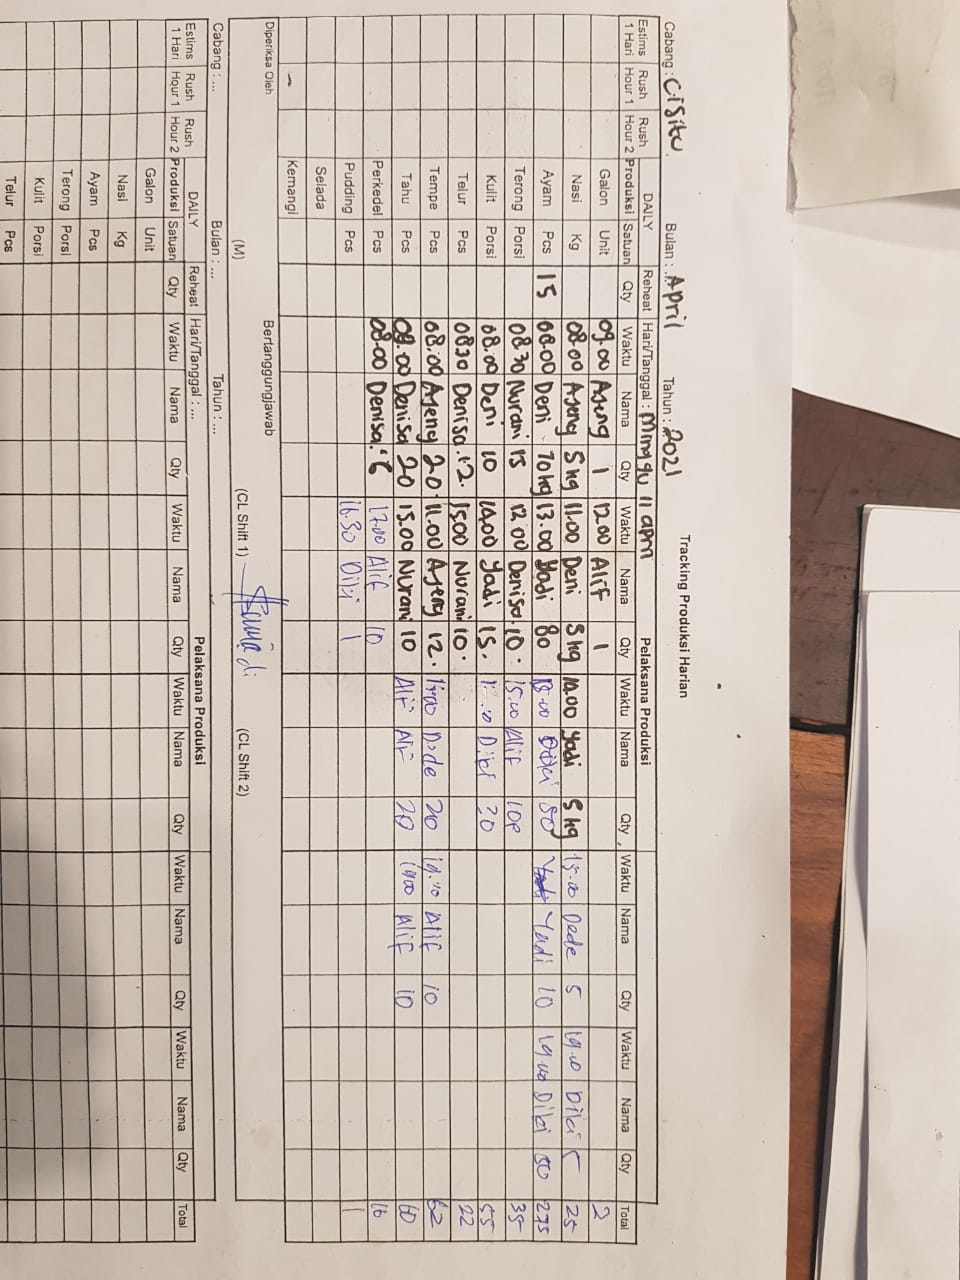 Tracking Produksi Harian
Cabang : Cisitu. Bulan : April Tahun : 2021
Estims 1 Hari Rush Hour 1 Rush Hour 2 DAILY Produksi Satuan Reheat Qty Hari/Tanggal : Minggu 11 april Pelaksana Produksi
Waktu Nama Qty Waktu Nama Qty Waktu Nama Qty Waktu Nama Qty Waktu Nama Qty Total
Galon Unit 09.00 Ajeng 1 12.00 Alif 1 2
Nasi Kg 08.00 Ajeng 5 kg 11.00 Deni 5 kg 10.00 Yadi 5 kg 15.00 Dede 5 19.00 Diki 5 25
Ayam Pcs 15 08.00 Deni 70 kg 13.00 Yadi 80 Diki 50 Yadi 10 19.00 Diki 50 275
Terong Porsi 08.30 Nurani 15 12.00 Denisa. 10. 15.00 Alif 10P 35
Kulit Porsi 08.00 Deni 10 Yadi 15. Diki 55
Telur Pcs 0830 Denisa. 12. 1500 Nurani 10. 22
Tempe Pcs 08.00 Ajeng 20. 11.00 Ajeng 12. Dede 20 19.00 Alif 10 62
Tahu Pcs 08.00 Denisa 20 15.00 Nurani 10 Alif Alif 20 1900 Alif 10 60
Perkedel Pcs 08.00 Denisa. 6 17.00 Alif 10 16
Pudding Pcs 16.30 Diki 1 1
Selada
Kemangi
Diperiksa Oleh Bertanggungjawab
(M) (CL Shift 1) (CL Shift 2)
Cabang : ... Bulan : ... Tahun : ...
Estims 1 Hari Rush Hour 1 Rush Hour 2 DAILY Produksi Satuan Reheat Qty Hari/Tanggal : ... Pelaksana Produksi
Waktu Nama Qty Waktu Nama Qty Waktu Nama Qty Waktu Nama Qty Waktu Nama Qty Total
Galon Unit
Nasi Kg
Ayam Pcs
Terong Porsi
Kulit Porsi
Telur Pcs